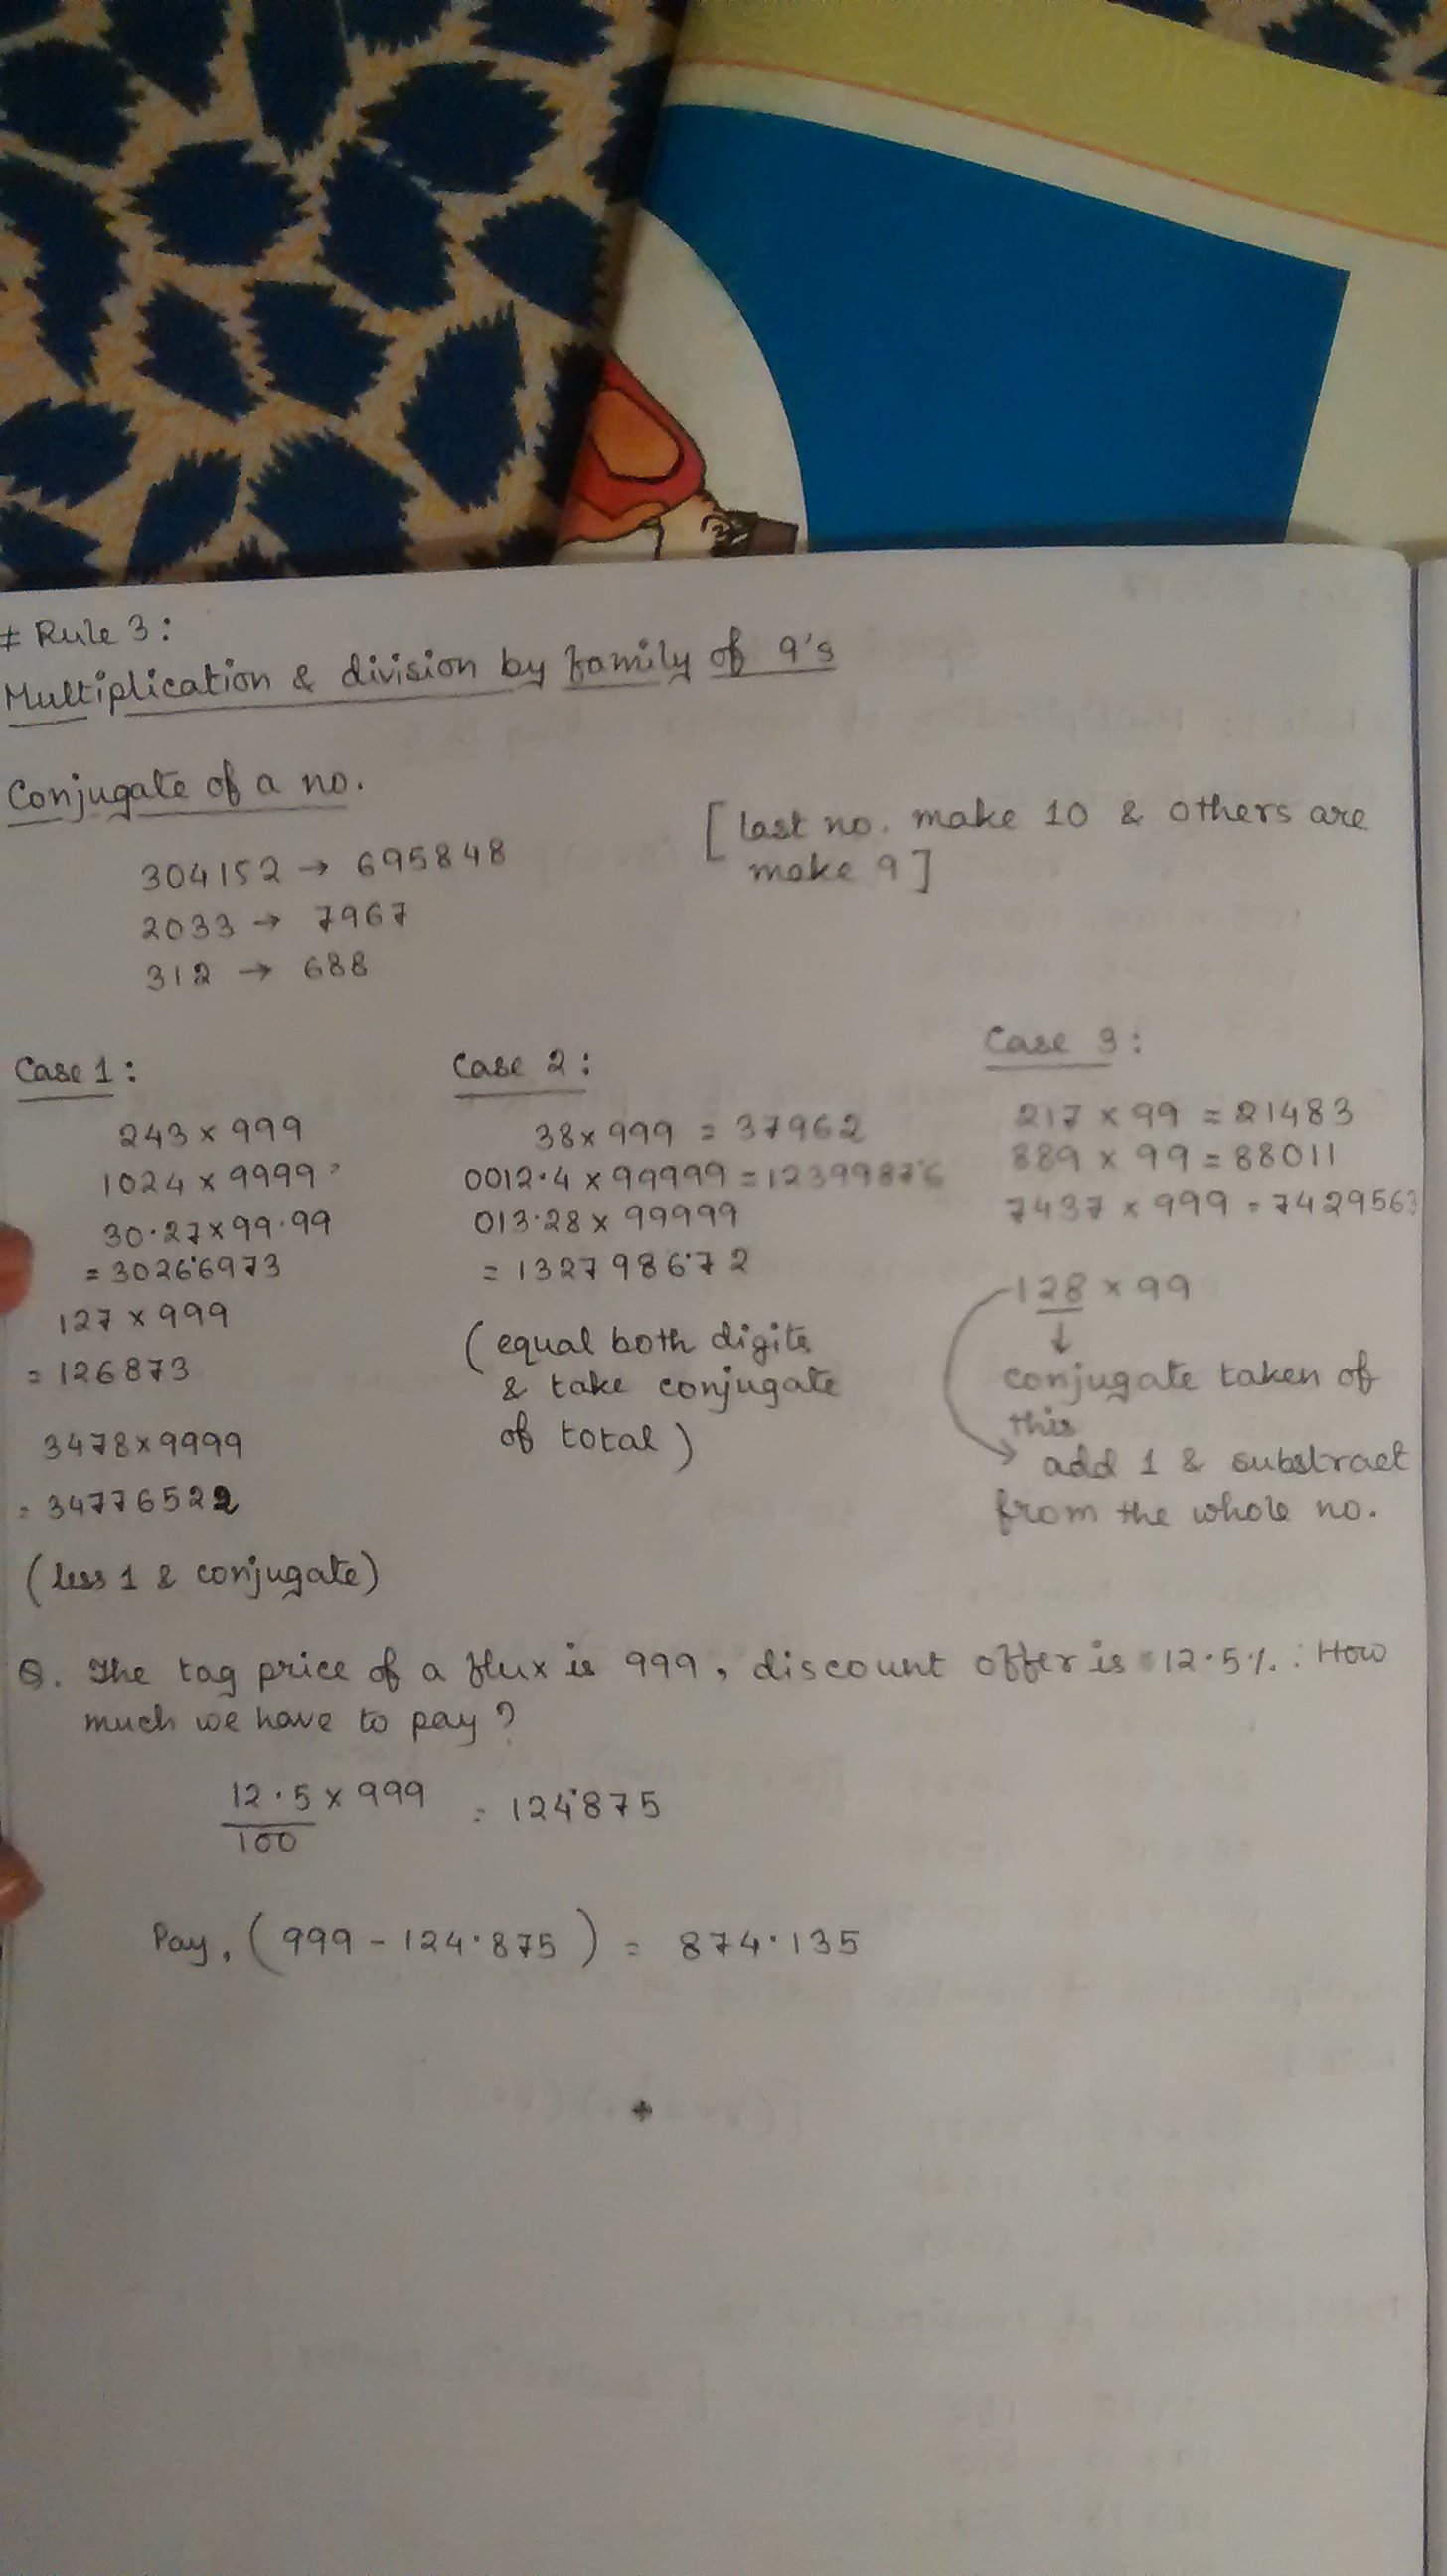 # Rule 3:
Multiplication & division by family of 9's
Conjugate of a no.
[last no. make 10 & others are
make 9]
304152 → 695848
2033 → 7967
312 → 688
Case 1:
243 × 999
1024 × 9999
30.27 × 99.99
= 3026.6973
127 × 999
= 126873
3478 × 9999
= 34776522
(less 1 & conjugate)
Case 2:
38 × 999 = 37962
0012.4 × 99999 = 1239987.6
013.28 × 99999
= 1327986.72
(equal both digits
& take conjugate
of total)
Case 3:
217 × 99 = 21483
889 × 99 = 88011
7437 × 999 = 7429563
128 × 99
↓
conjugate taken of
this
add 1 & substract
from the whole no.
Q. The tag price of a flux is 999, discount offer is 12.5%. How
much we have to pay?
12.5 × 999 = 124.875
100
Pay, (999 - 124.875) = 874.135